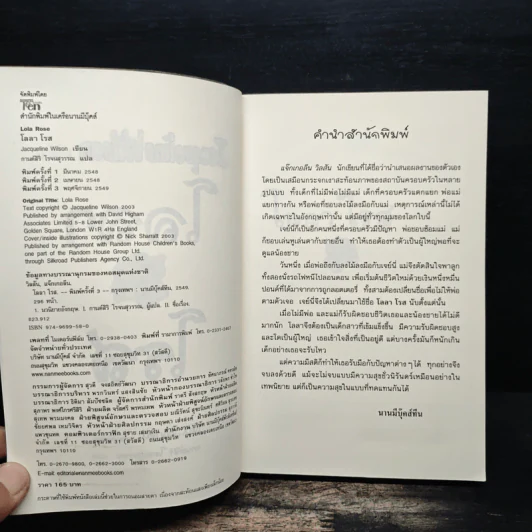 จัดพิมพ์โดย
สำนักพิมพ์ในเครือนานมีบุ๊คส์
Lola Rose
โลลา โรส
Jacqueline Wilson เขียน
แปล
พิมพ์ครั้งที่ 1 มีนาคม 2548
พิมพ์ครั้งที่ 2 เมษายน 2548
พิมพ์ครั้งที่ 3 พฤศจิกายน 2548
Original Title: Lola Rose
Text copyright © Jacqueline Wilson 2003
Published by arrangement with David Higham
Associates Limited 5-8 Lower John Street,
Golden Square, London W1R 4HA England
Cover/inside illustrations copyright © Nick Sharratt 2003
Published by arrangement with Random House Children's Books,
one part of the Random House Group Ltd.
through Silkroad Publishers Agency Co., Ltd.
ข้อมูลทางบรรณานุกรมของหอสมุดแห่งชาติ
วิลสัน, แจ๊กเกอลีน.
โลลา โรส.-- พิมพ์ครั้งที่ 3 -- กรุงเทพฯ : นานมีบุ๊คส์ทีน, 2548.
296 หน้า.
823.912
ISBN 974-9699-59-0
www.nanmeebooks.com
โทร. 0-2670-9800, 0-2662-3000 โทรสาร 0-2662-0919
E-mail: editorial@nanmeebooks.com
ราคา 165 บาท
คำนำสำนักพิมพ์
แจ๊กเกอลีน วิลสัน นักเขียนที่ได้ชื่อว่านำเสนอผลงานของตัวเอง
โดยเป็นเสมือนกระจกเงาสะท้อนภาพของสถาบันครอบครัวในหลาย
รูปแบบ ทั้งเด็กที่ไม่มีพ่อไม่มีแม่ เด็กที่ครอบครัวแตกแยก พ่อแม่
แยกทางกัน หรือพ่อที่ชอบลงไม้ลงมือกับแม่ เหตุการณ์เหล่านี้ไม่ได้
เกิดเฉพาะในอังกฤษเท่านั้น แต่มีอยู่ทั่วทุกมุมของโลกใบนี้
เจย์นี่ก็เป็นอีกคนหนึ่งที่ครอบครัวมีปัญหา พ่อชอบซ้อมแม่ แม่
ก็ชอบเล่นหูเล่นตากับชายอื่น ทำให้เธอต้องทำตัวเป็นผู้ใหญ่พอที่จะ
ดูแลน้องชาย
วันหนึ่ง เมื่อพ่อถึงกับลงไม้ลงมือกับเจย์นี่ แม่จึงตัดสินใจพาลูก
ทั้งสองนั่งรถไฟหนีไปลอนดอน เพื่อเริ่มต้นชีวิตใหม่ด้วยเงินหนึ่งหมื่น
ปอนด์ที่ได้มาจากการถูกลอตเตอรี่ ทั้งสามต้องเปลี่ยนชื่อเพื่อไม่ให้พ่อ
ตามตัวเจอ เจย์นี่จึงได้เปลี่ยนมาใช้ชื่อ โลลา โรส นับตั้งแต่นั้น
เมื่อไม่มีพ่อ และแม่ก็รับผิดชอบชีวิตของเธอและน้องชายได้ไม่ดี
มากนัก โลลาจึงต้องเป็นเด็กสาวที่เข้มแข็งขึ้น มีความรับผิดชอบสูง
และโตเป็นผู้ใหญ่ เธอเข้าใจสิ่งที่เป็นอยู่ดี แต่บางครั้งมันก็หนักเกิน
เด็กอย่างเธอจะรับไหว
แต่ความมีสติก็ทำให้เธอรับมือกับปัญหาต่างๆ ได้ ทุกอย่างจึง
จบลงด้วยดี แม้จะไม่จบแบบมีความสุขชั่วนิรันดร์เหมือนอย่างใน
เทพนิยาย แต่ก็เป็นความสุขในแบบที่ทดแทนกันได้
นานมีบุ๊คส์ทีน